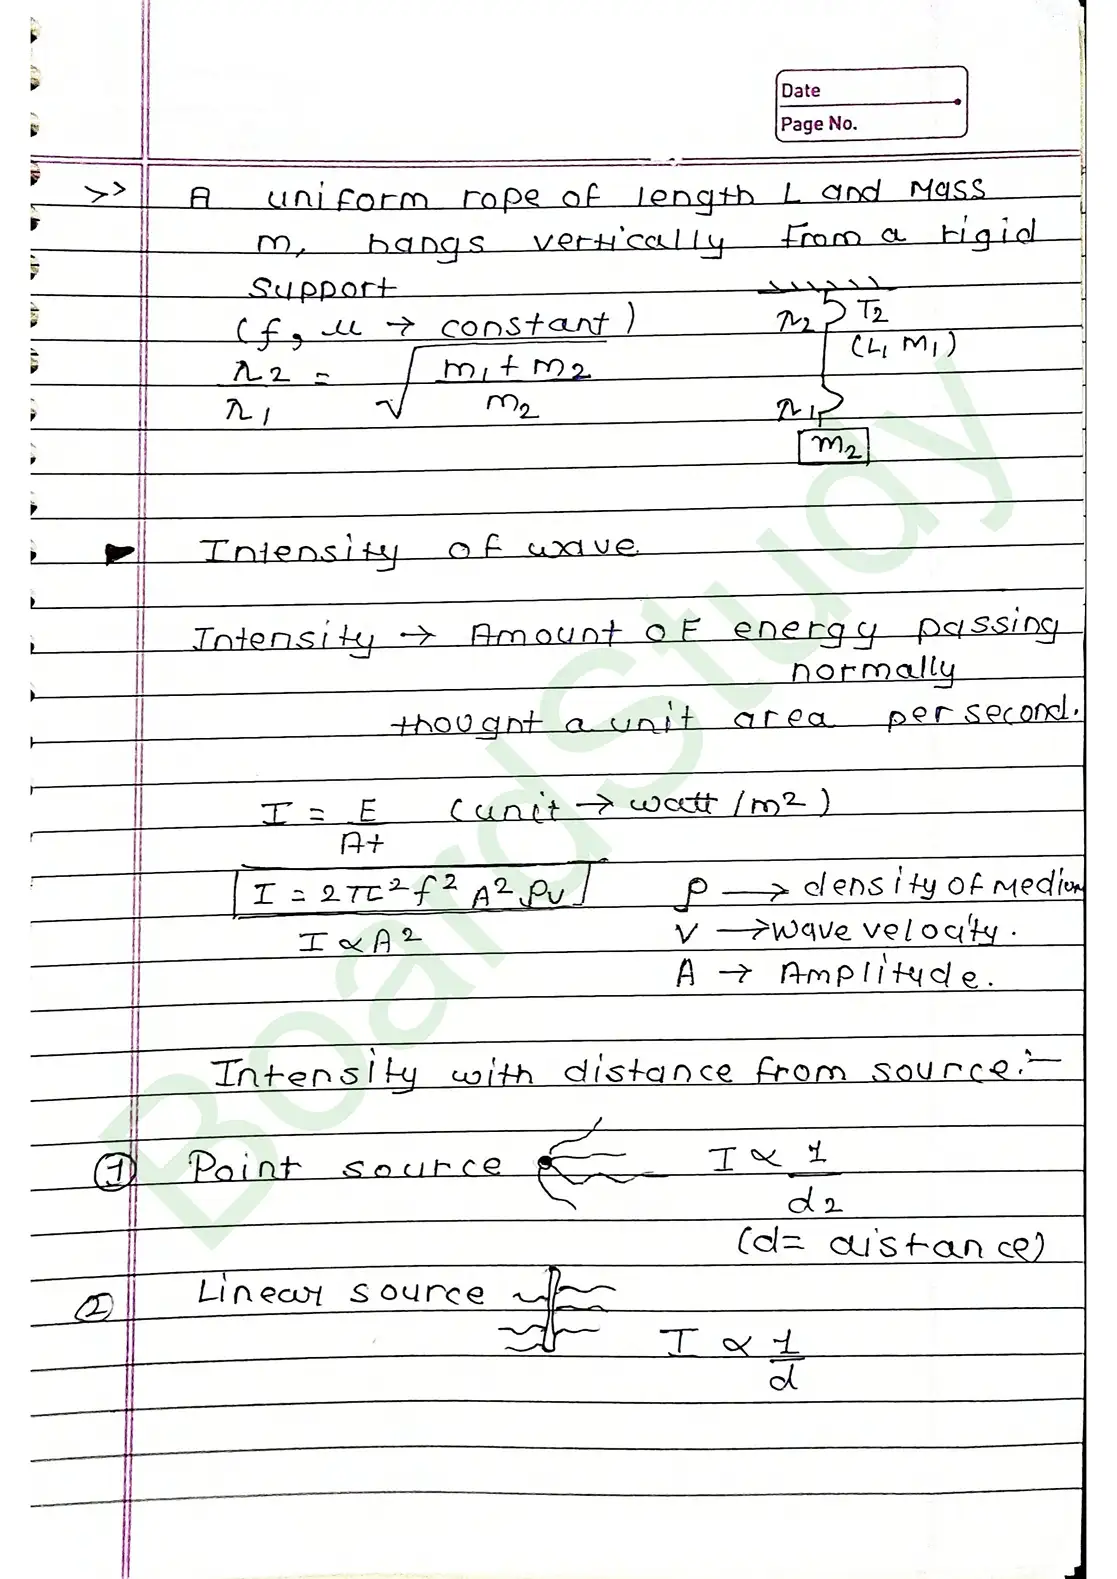 Date
Page No.
>> A uniform rope of length L and Mass
m, hangs vertically from a rigid
support
(f, μ → constant)
λ2/λ1 = √(m1 + m2 / m2)
λ2 T2
(L, M1)
λ1
m2
Intensity of wave
Intensity → Amount of energy passing
normally
thought a unit area per second.
I = E/At (unit → watt/m²)
I = 2π²f²A²ρv
ρ → density of Medium
I ∝ A²
v → wave velocity.
A → Amplitude.
Intensity with distance from source:-
① Point source I ∝ 1/d2
(d = distance)
② Linear source
I ∝ 1/d
BoardStudy